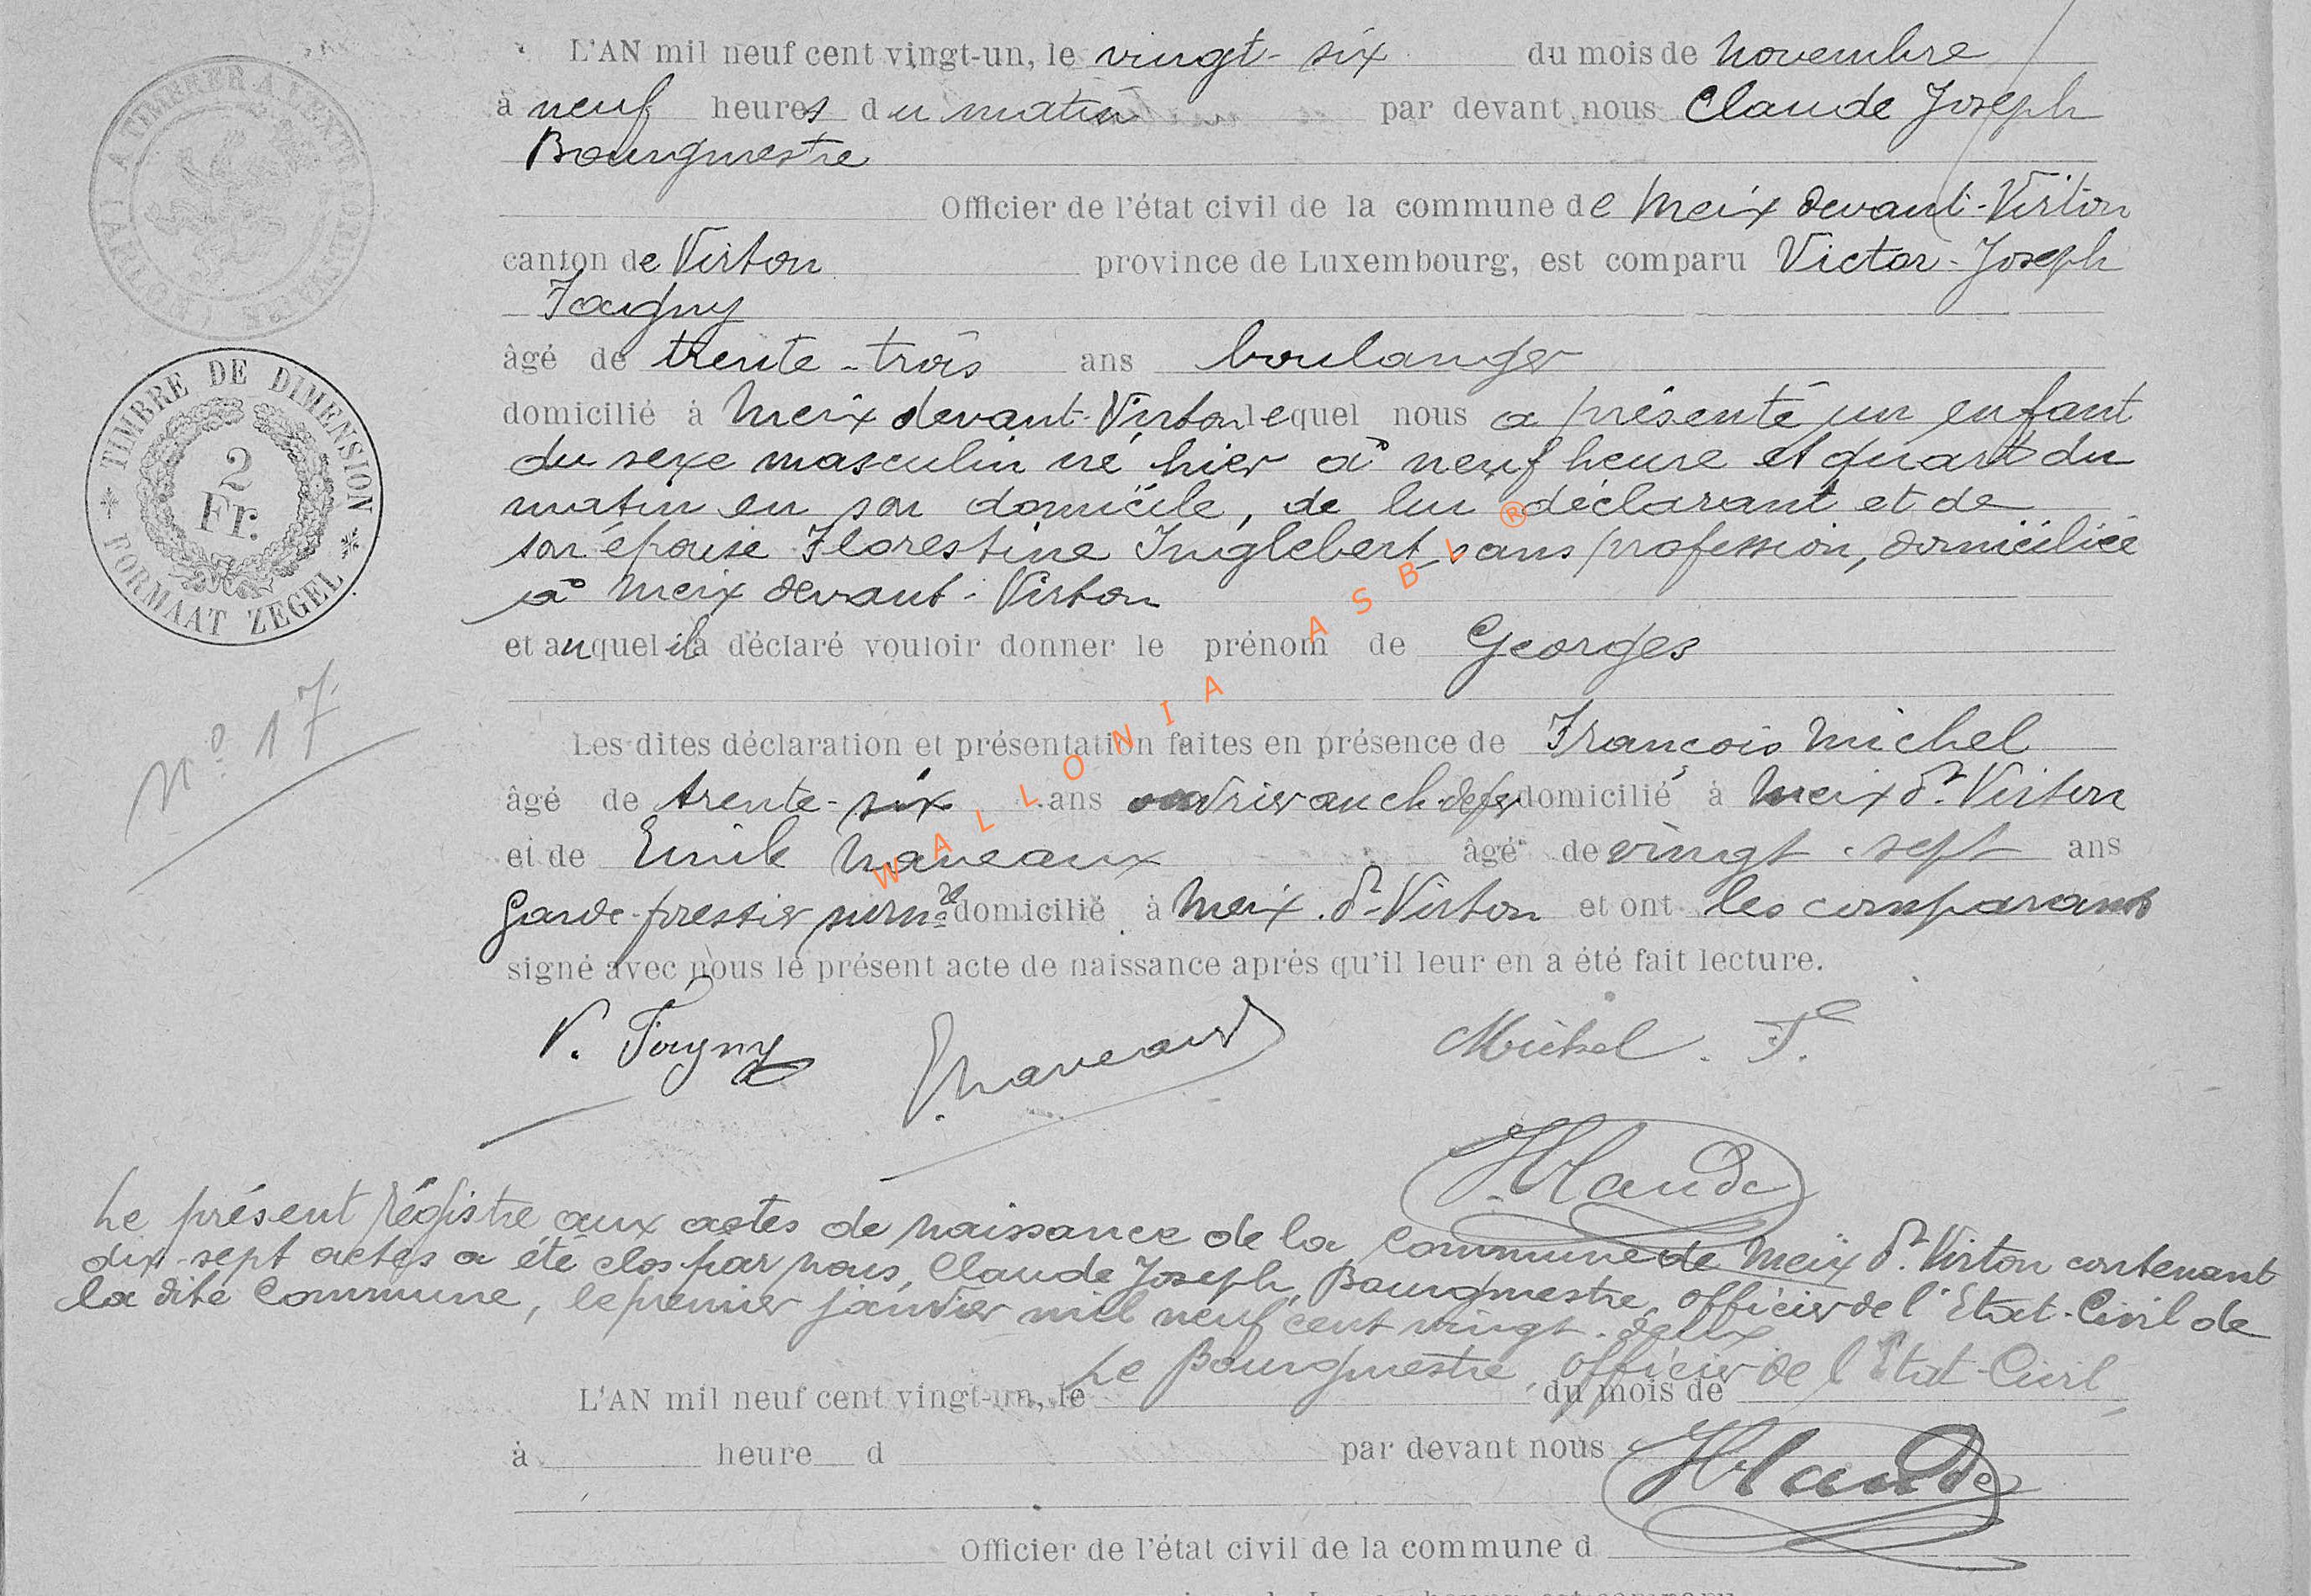 L'AN mil neuf cent vingt-un, le vingt-six du mois de Novembre
à neuf heures du matin par devant nous Claude Joseph
Bourgmestre
Officier de l'état civil de la commune de Meix devant-Virton
canton de Virton province de Luxembourg, est comparu Victor-Joseph
Foigny
âgé de trente-trois ans boulanger
domicilié à Meix devant-Virton lequel nous a présenté un enfant
du sexe masculin né hier à neuf heure et quart du
matin en son domicile, de lui déclarant et de
son épouse Florestine Inglebert sans profession, domiciliée
à Meix devant-Virton
et auquel il a déclaré vouloir donner le prénom de Georges
Les dites déclaration et présentation faites en présence de François Michel
âgé de trente-six ans ouvrier au ch. de fer domicilié à Meix dt Virton
et de Emile Naveaux âgé de vingt-sept ans
Garde-frestier surnre domicilié à Meix dt-Virton et ont les comparants
signé avec nous le présent acte de naissance après qu'il leur en a été fait lecture.
V. Foigny
E. Naveaux
Michel. F.
J. Claude
Le présent régistre aux actes de naissance de la Commune de Meix dt. Virton contenant
dix-sept actes a été clos par nous, Claude Joseph, Bourgmestre, officier de l'Etat-Civil de
la dite Commune, le premier janvier mil neuf cent vingt-deux
Le Bourgmestre, officier de l'Etat-Civil,
L'AN mil neuf cent vingt-un, le du mois de
à heure d par devant nous
J. Claude
Officier de l'état civil de la commune d
TIMBRE DE DIMENSION
2
Fr.
FORMAAT ZEGEL
No 17
WALLONIA ASBL ®